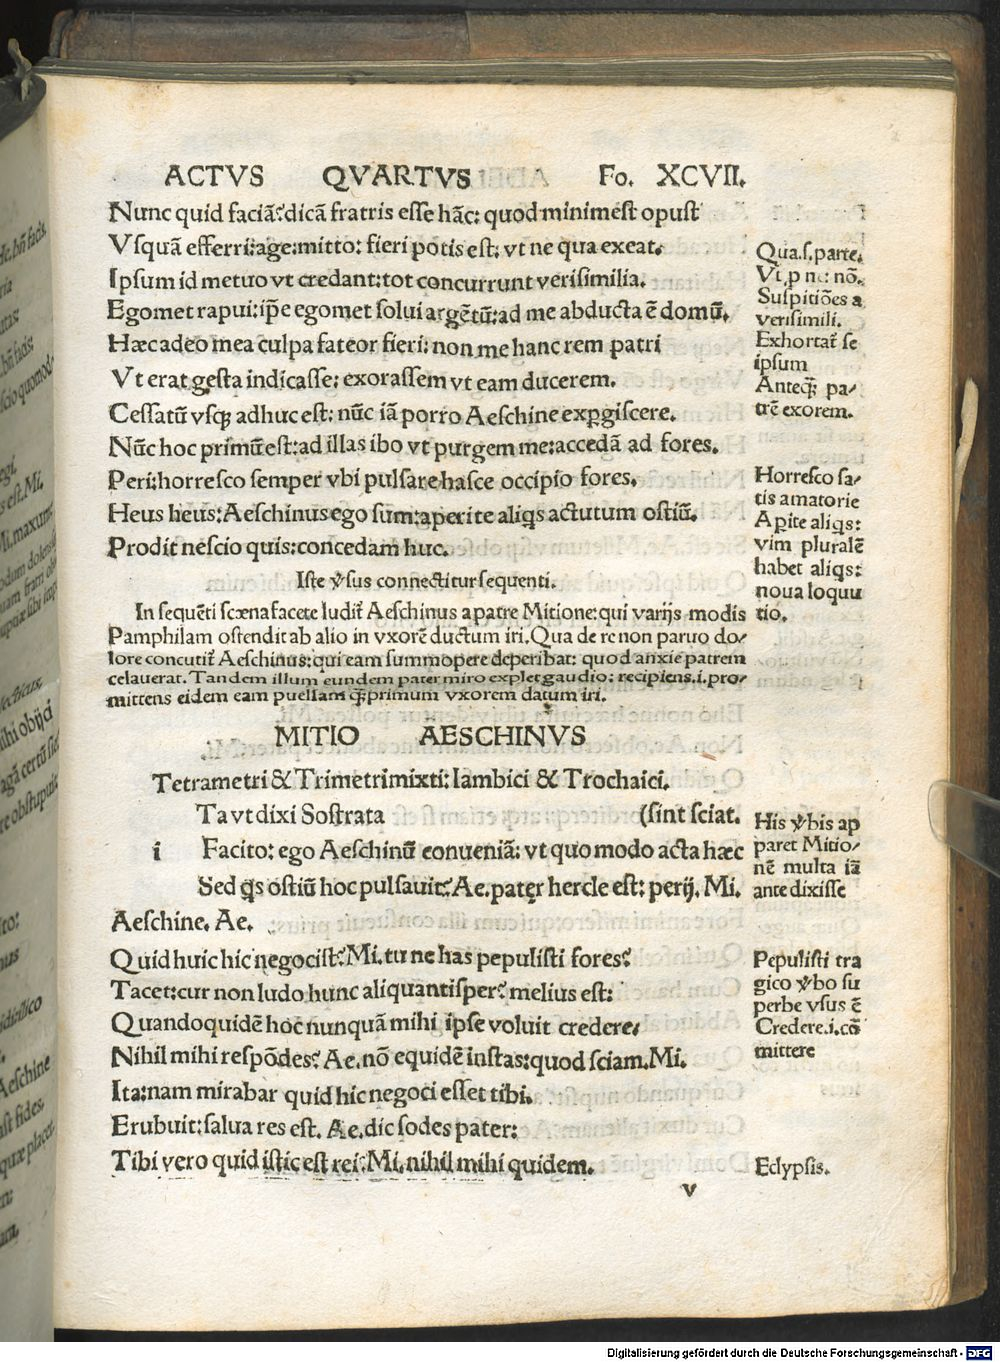 ACTVS QVARTVS Fo. XCVII.
Nunc quid faciā? dicā fratris esse hāc: quod minimest opust
Vsquā efferri: age: mitto: fieri potis est: vt ne qua exeat.
Ipsum id metuo vt credant: tot concurrunt verisimilia.
Egomet rapui: ip̄e egomet solui argētū: ad me abducta ē domū.
Hæc adeo mea culpa fateor fieri: non me hanc rem patri
Vt erat gesta indicasse: exorassem vt eam ducerem.
Cessatū vsq; adhuc est: nūc iā porro Aeschine expgiscere.
Nūc hoc primū est: ad illas ibo vt purgem me: accedā ad fores.
Peri: horresco semper vbi pulsare hasce occipio fores.
Heus heus: Aeschinus ego sum: aperite aliqs actutum ostiū.
Prodit nescio quis: concedam huc.
Iste v̄sus connectitur sequenti.
In sequēti scæna facete ludit̄ Aeschinus a patre Mitione: qui varijs modis
Pamphilam ostendit ab alio in vxorē ductum iri. Qua de re non paruo do/
lore concutit̄ Aeschinus: qui eam summopere deperibat: quod anxie patrem
celauerat. Tandem illum eundem pater miro explet gaudio: recipiens .i. pro/
mittens eidem eam puellam q̄; primum vxorem datum iri.
MITIO AESCHINVS
Tetrametri & Trimetri mixti: Iambici & Trochaici.
Ta vt dixi Sostrata (sint sciat.
i Facito: ego Aeschinū conueniā: vt quo modo acta hæc
Sed qs ostiū hoc pulsauit? Ae. pater hercle est: perij. Mi.
Aeschine. Ae.
Quid huic hic negocist? Mi. tu ne has pepulisti fores?
Tacet: cur non ludo hunc aliquantisper? melius est:
Quandoquidē hoc nunquā mihi ipse voluit credere.
Nihil mihi respōdes? Ae. nō equidē instas: quod sciam. Mi.
Ita: nam mirabar quid hic negoci esset tibi.
Erubuit: salua res est. Ae. dic sodes pater:
Tibi vero quid istic est rei? Mi. nihil mihi quidem.
v
Qua .s. parte.
Vt, p ne: nō.
Suspitiões a
verisimili.
Exhortat̄ se
ipsum
Anteq̄; pa/
trē exorem.
Horresco sa/
tis amatorie
Apite aliqs:
vim pluralē
habet aliqs:
noua loquu
tio.
His v̄bis ap
paret Mitio/
nē multa iā
ante dixisse
Pepulisti tra
gico v̄bo su
perbe vsus ē
Credere .i. cō
mittere
Eclypsis.
Digitalisierung gefördert durch die Deutsche Forschungsgemeinschaft - DFG